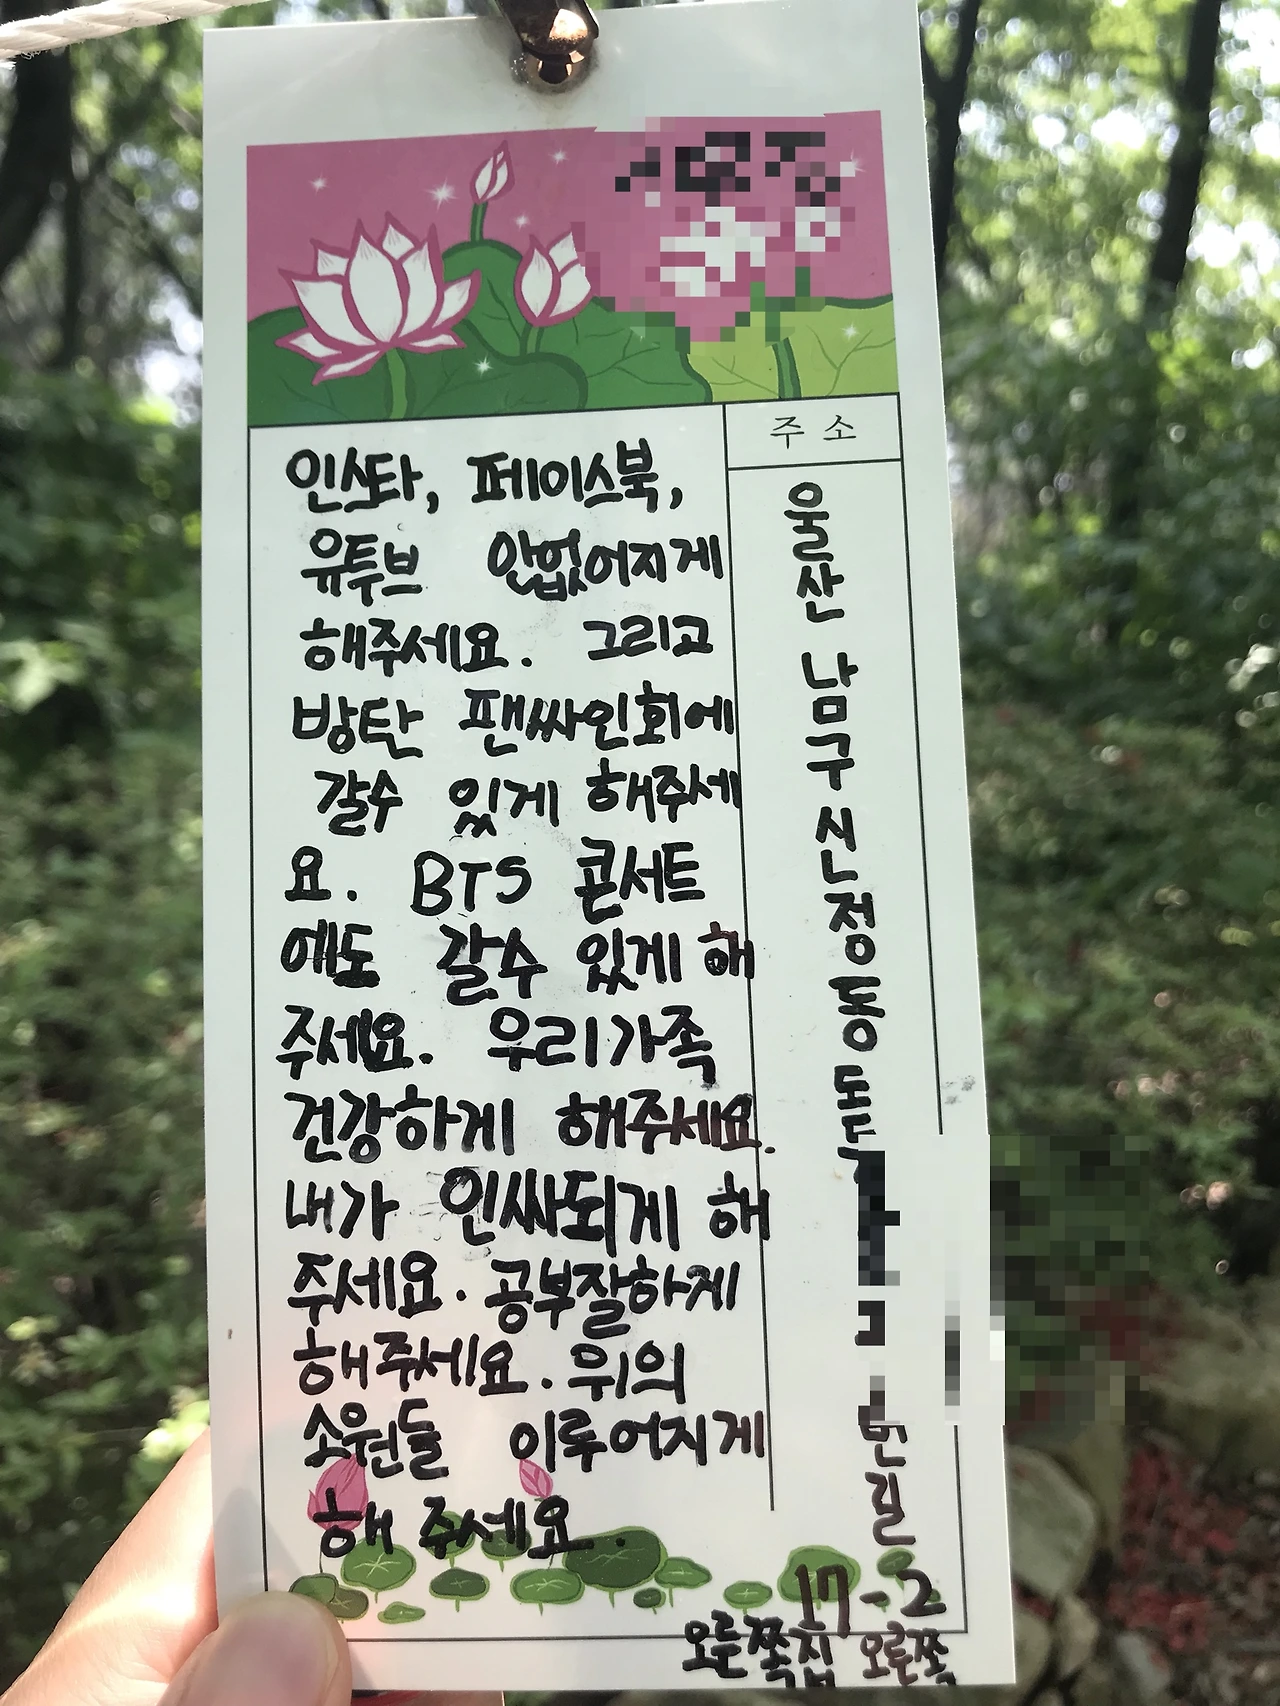 인스타, 페이스북,
유투브 안없어지게
해주세요. 그리고
방탄 팬싸인회에
갈수 있게 해주세
요. BTS 콘서트
에도 갈수 있게 해
주세요. 우리가족
건강하게 해주세요.
내가 인싸되게 해
주세요. 공부잘하게
해주세요. 위의
소원들 이루어지게
해 주세요.
주 소
울산 남구 신정동
번길
17-2
오른쪽집 오른쪽